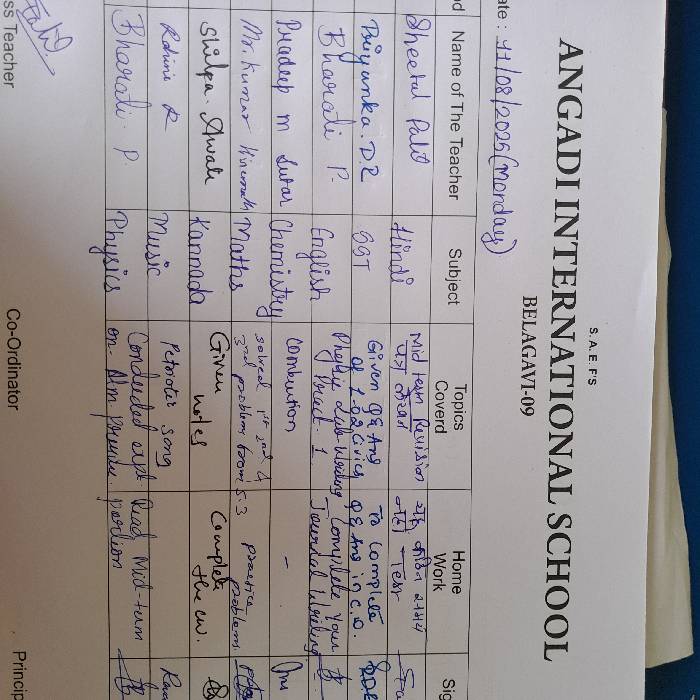 S.A.E.F'S
ANGADI INTERNATIONAL SCHOOL
BELAGAVI-09
ate : 11/08/2025 (Monday)
od Name of The Teacher Subject Topics Coverd Home Work Sig
Sheetal Patil Hindi Mid term Revision Test
Priyanka. D.R SST Given Q & Ans of L-02 Civics To complete Q & Ans in C.O.
Bharati P. English Complete your Journal Writing
Pradeep M Sutar Chemistry Combustion -
Mr. Kumar Hiremath Maths solved 1st and 2nd problem from 5.3 practice problems
Shilpa. Awati Kannada Given notes Complete the cw.
Rohini R Music Patriotic song
Bharati. P. Physics Conducted expt on. Read Mid-term portion
ss Teacher Co-Ordinator Princip